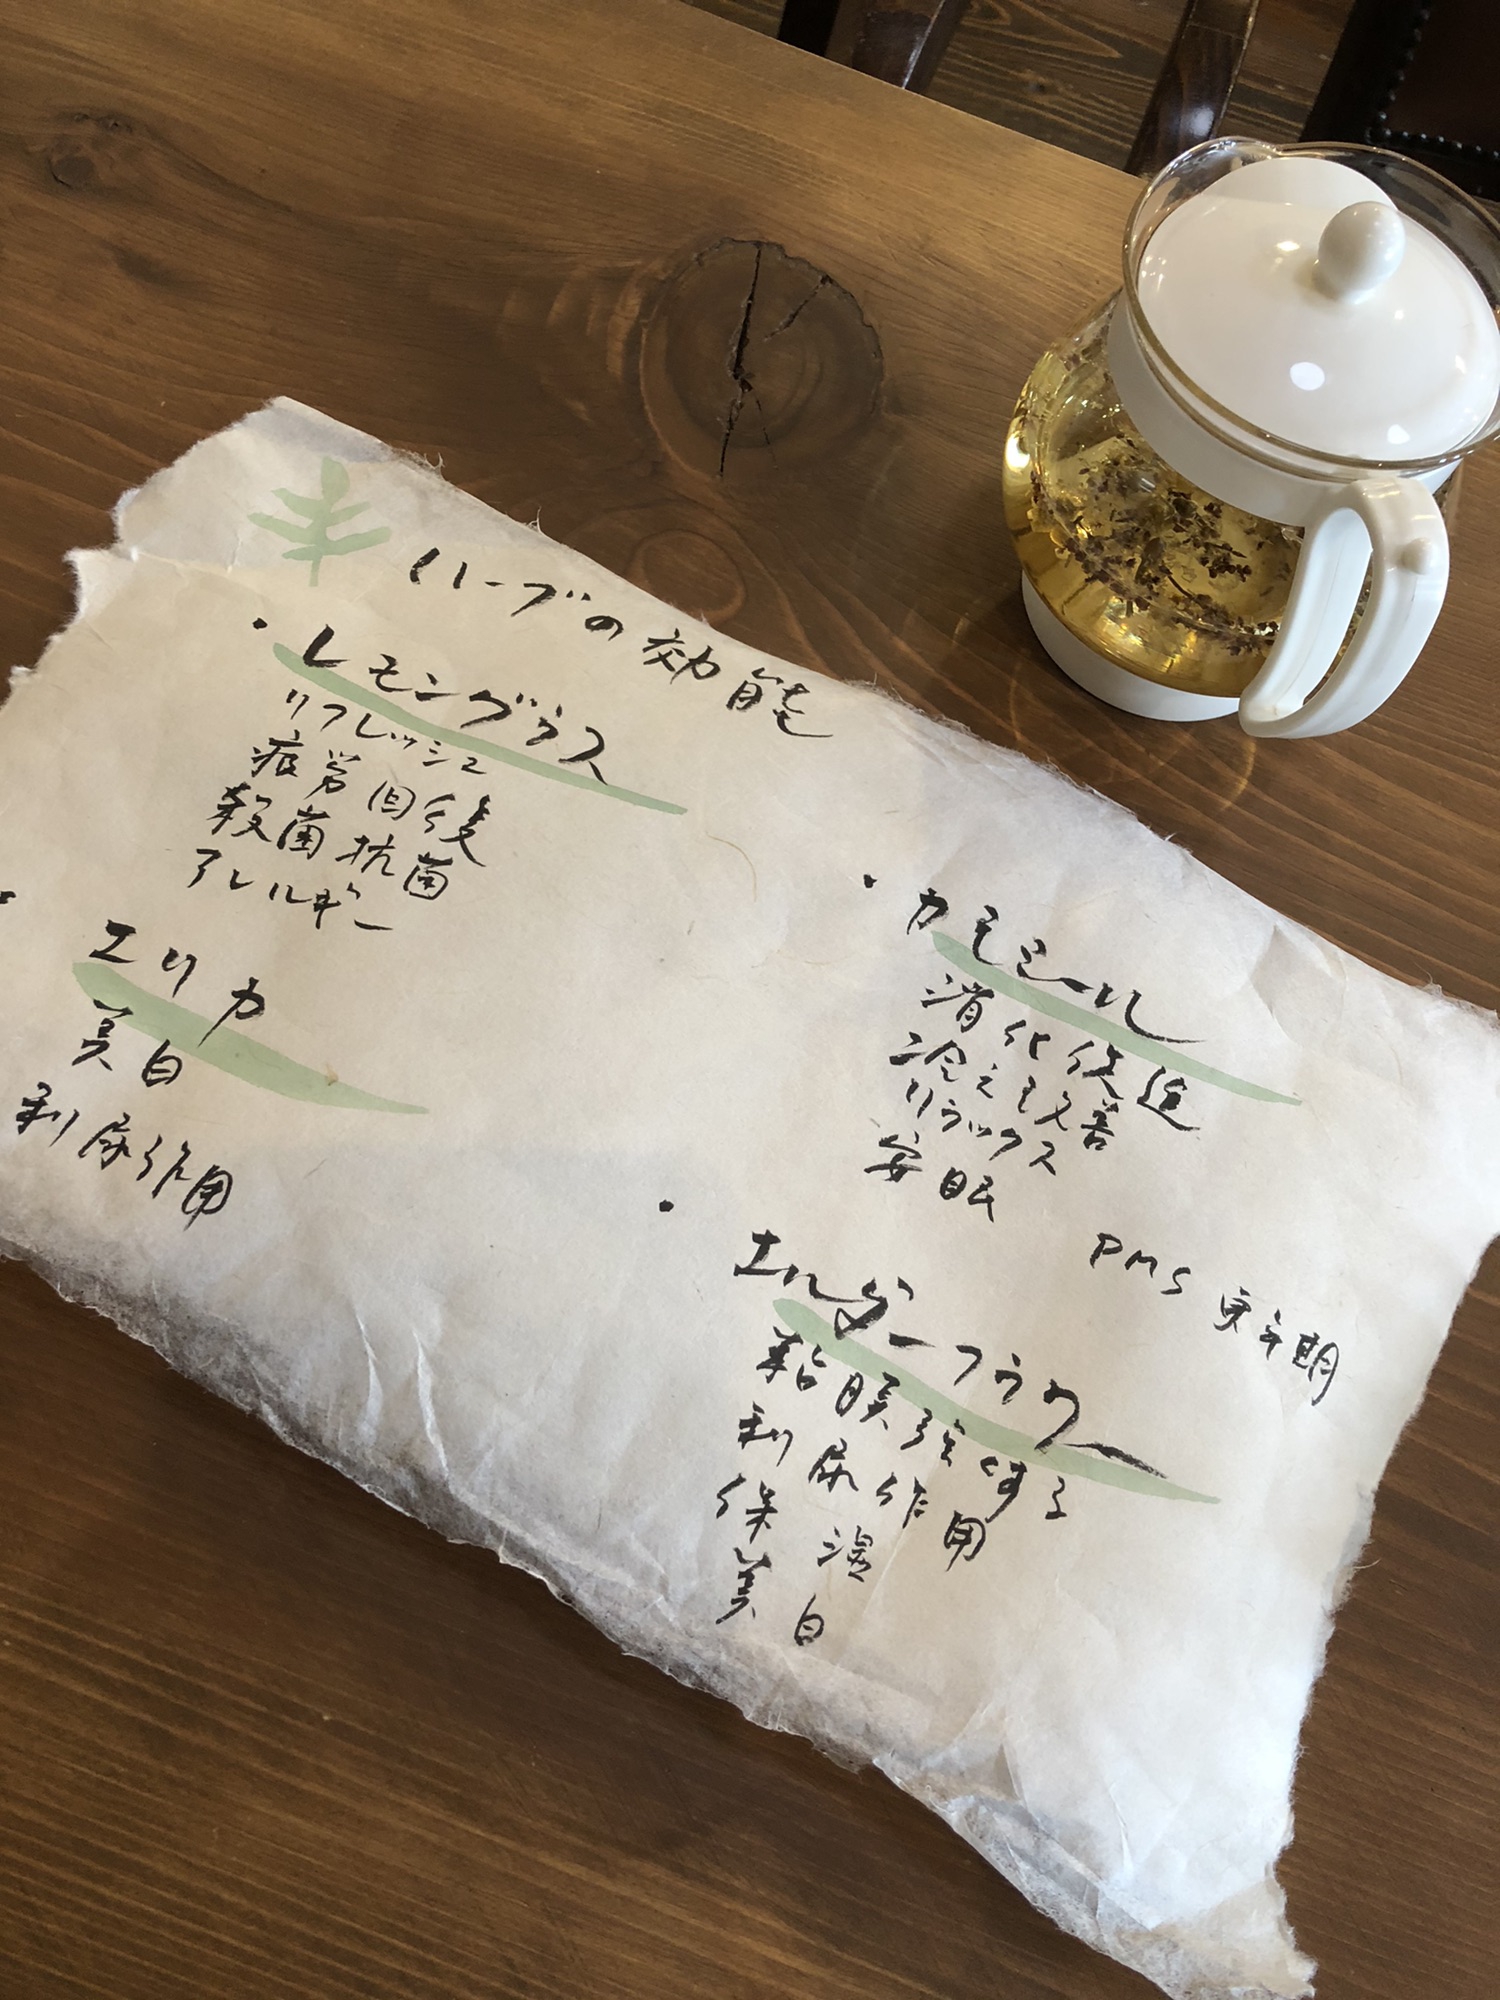 ハーブの効能
・レモングラス
リフレッシュ
疲労回復
殺菌抗菌
アレルギー
・エリカ
美白
利尿作用
・カモミール
消化促進
冷え改善
リラックス
安眠
PMS 更年期
・エルダーフラワー
粘膜強くする
利尿作用
保湿
美白